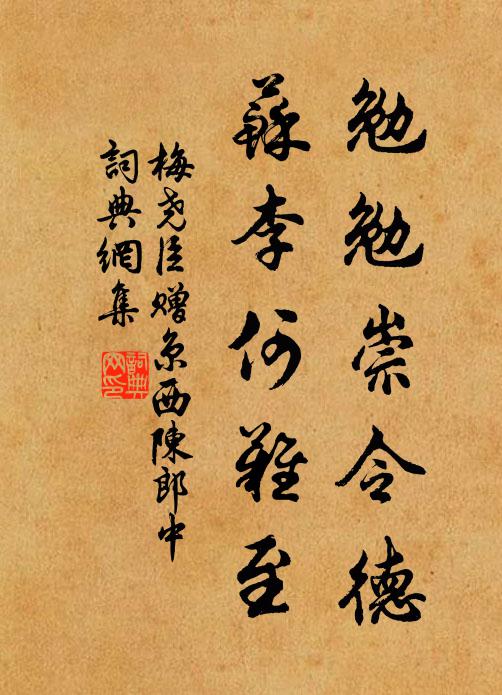 勉勉崇令德
蘇李何難至
梅堯臣贈京西陳郎中
詞典網集
詞典網印